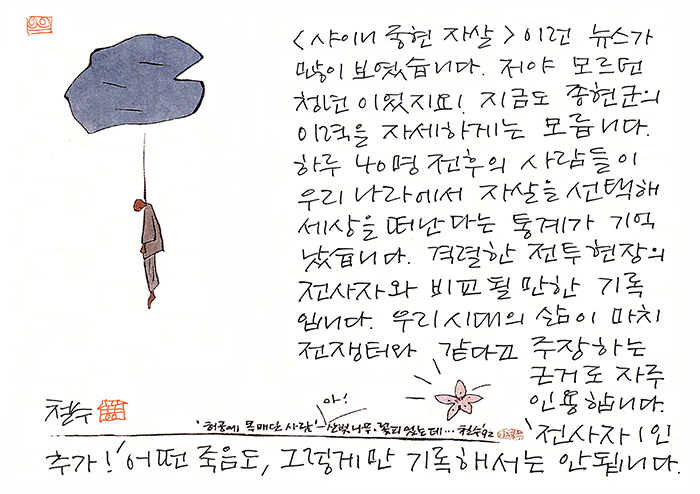 <샤이니 종현 자살> 이런 뉴스가
많이 보였습니다. 저야 모르던
청년이었지요! 지금도 종현군의
이력을 자세하게는 모릅니다.
하루 40명 전후의 사람들이
우리나라에서 자살을 선택해
세상을 떠난다는 통계가 기억
났습니다. 격렬한 전투현장의
전사자와 비교될 만한 기록
입니다. 우리시대의 삶이 마치
전쟁터와 같다고 주장하는
근거로 자주
인용합니다.
철수
아!
'허공에 목매단 사람' 산벚나무・꽃피었는데… 철수92
'전사자 1인
추가!' 어떤 죽음도, 그렇게만 기록해서는 안됩니다.